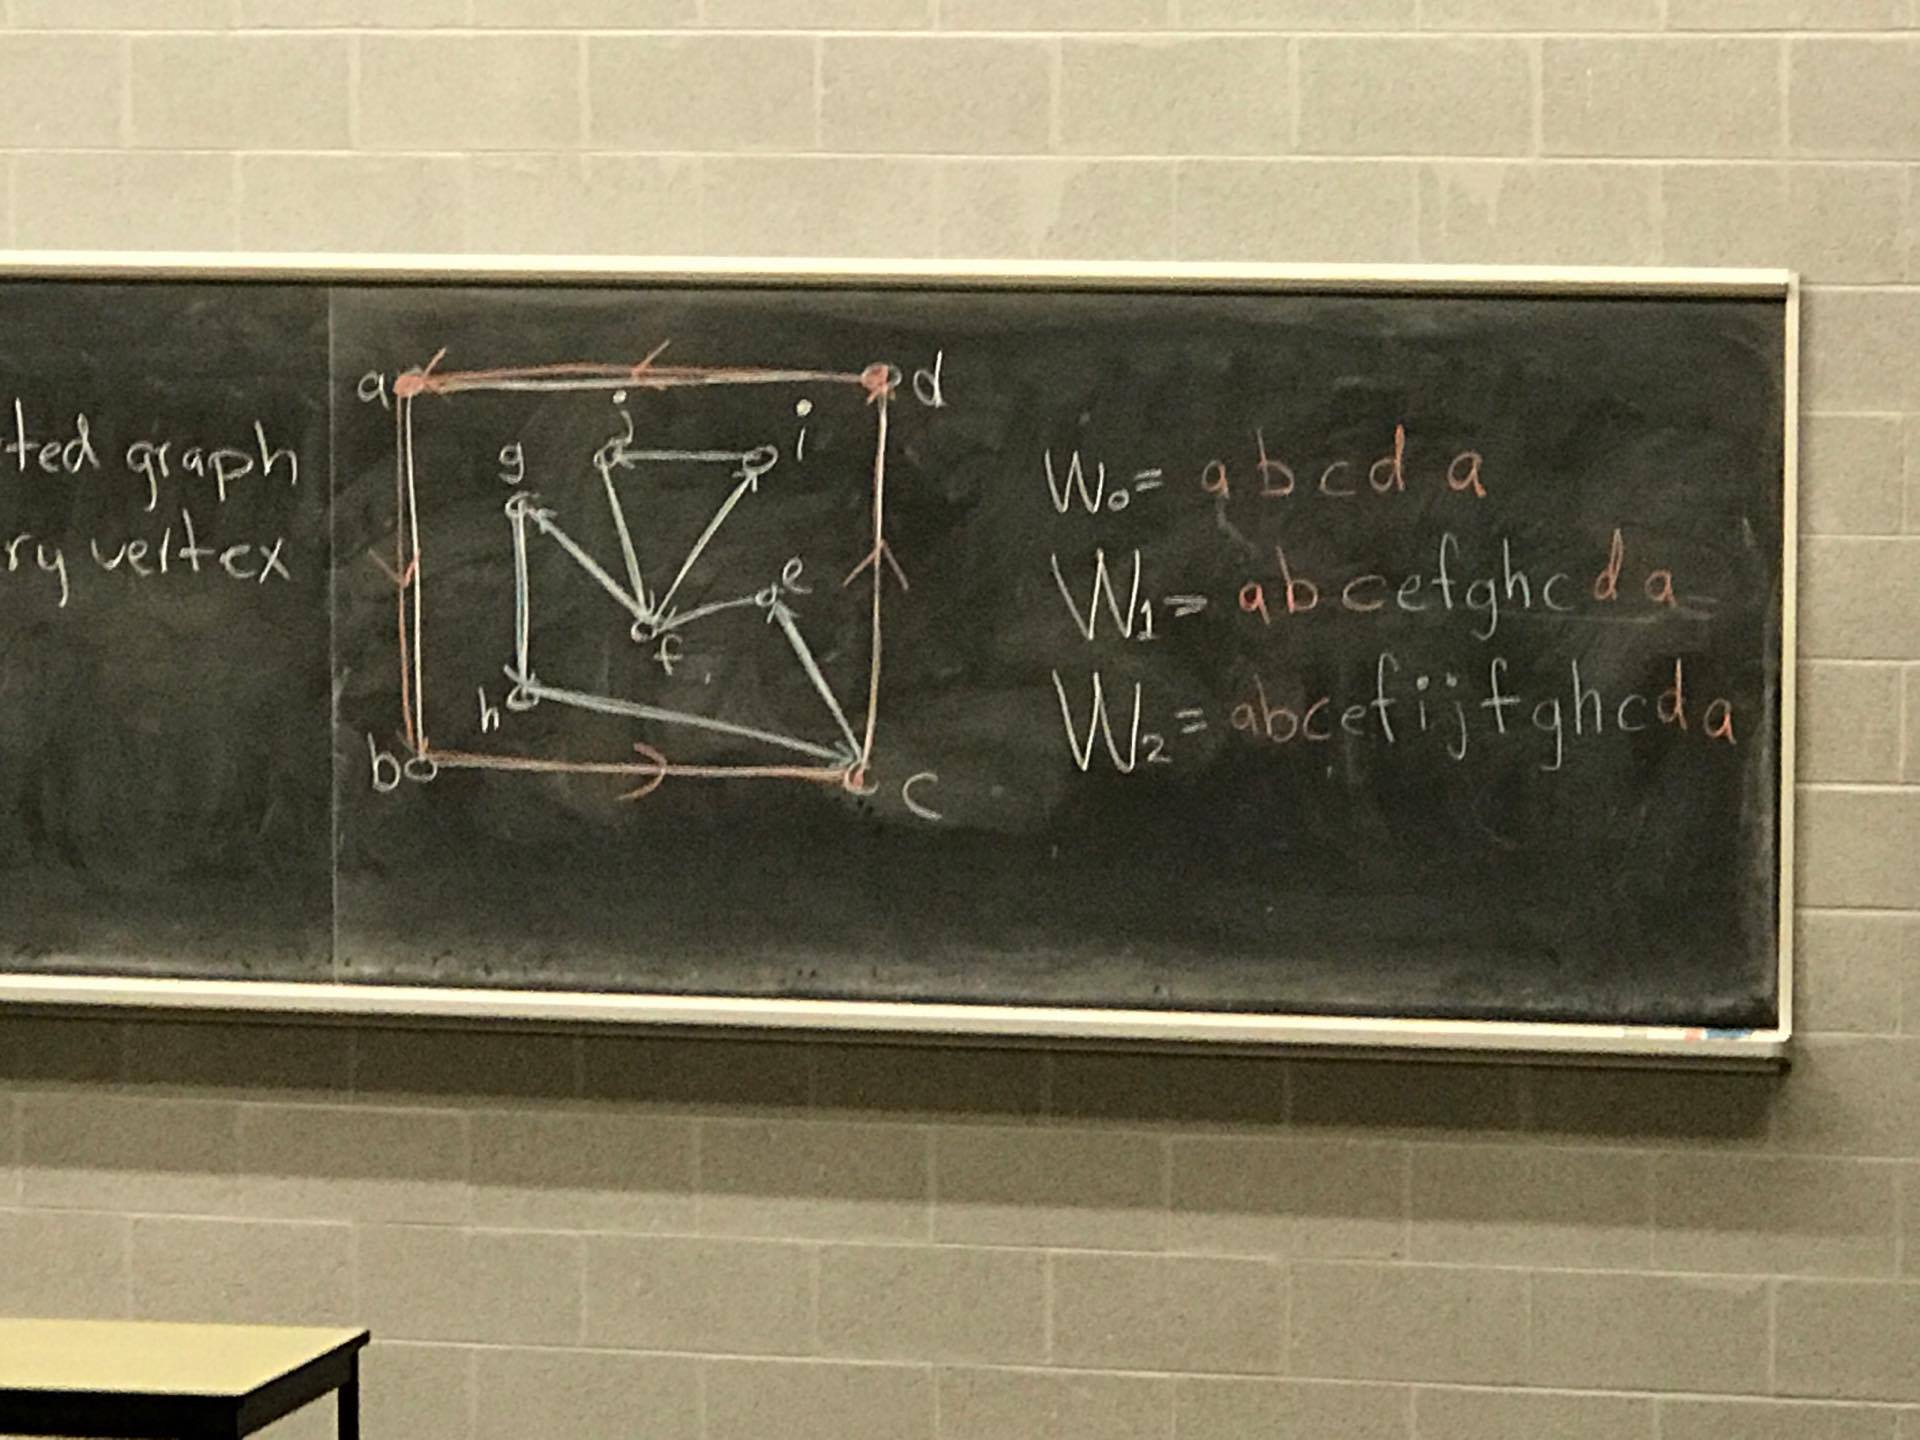 ted graph
ry vertex
a
d
j
i
g
e
f
h
b
c
W₀= abcd a
W₁= abcefghcda
W₂= abcefijfghcda